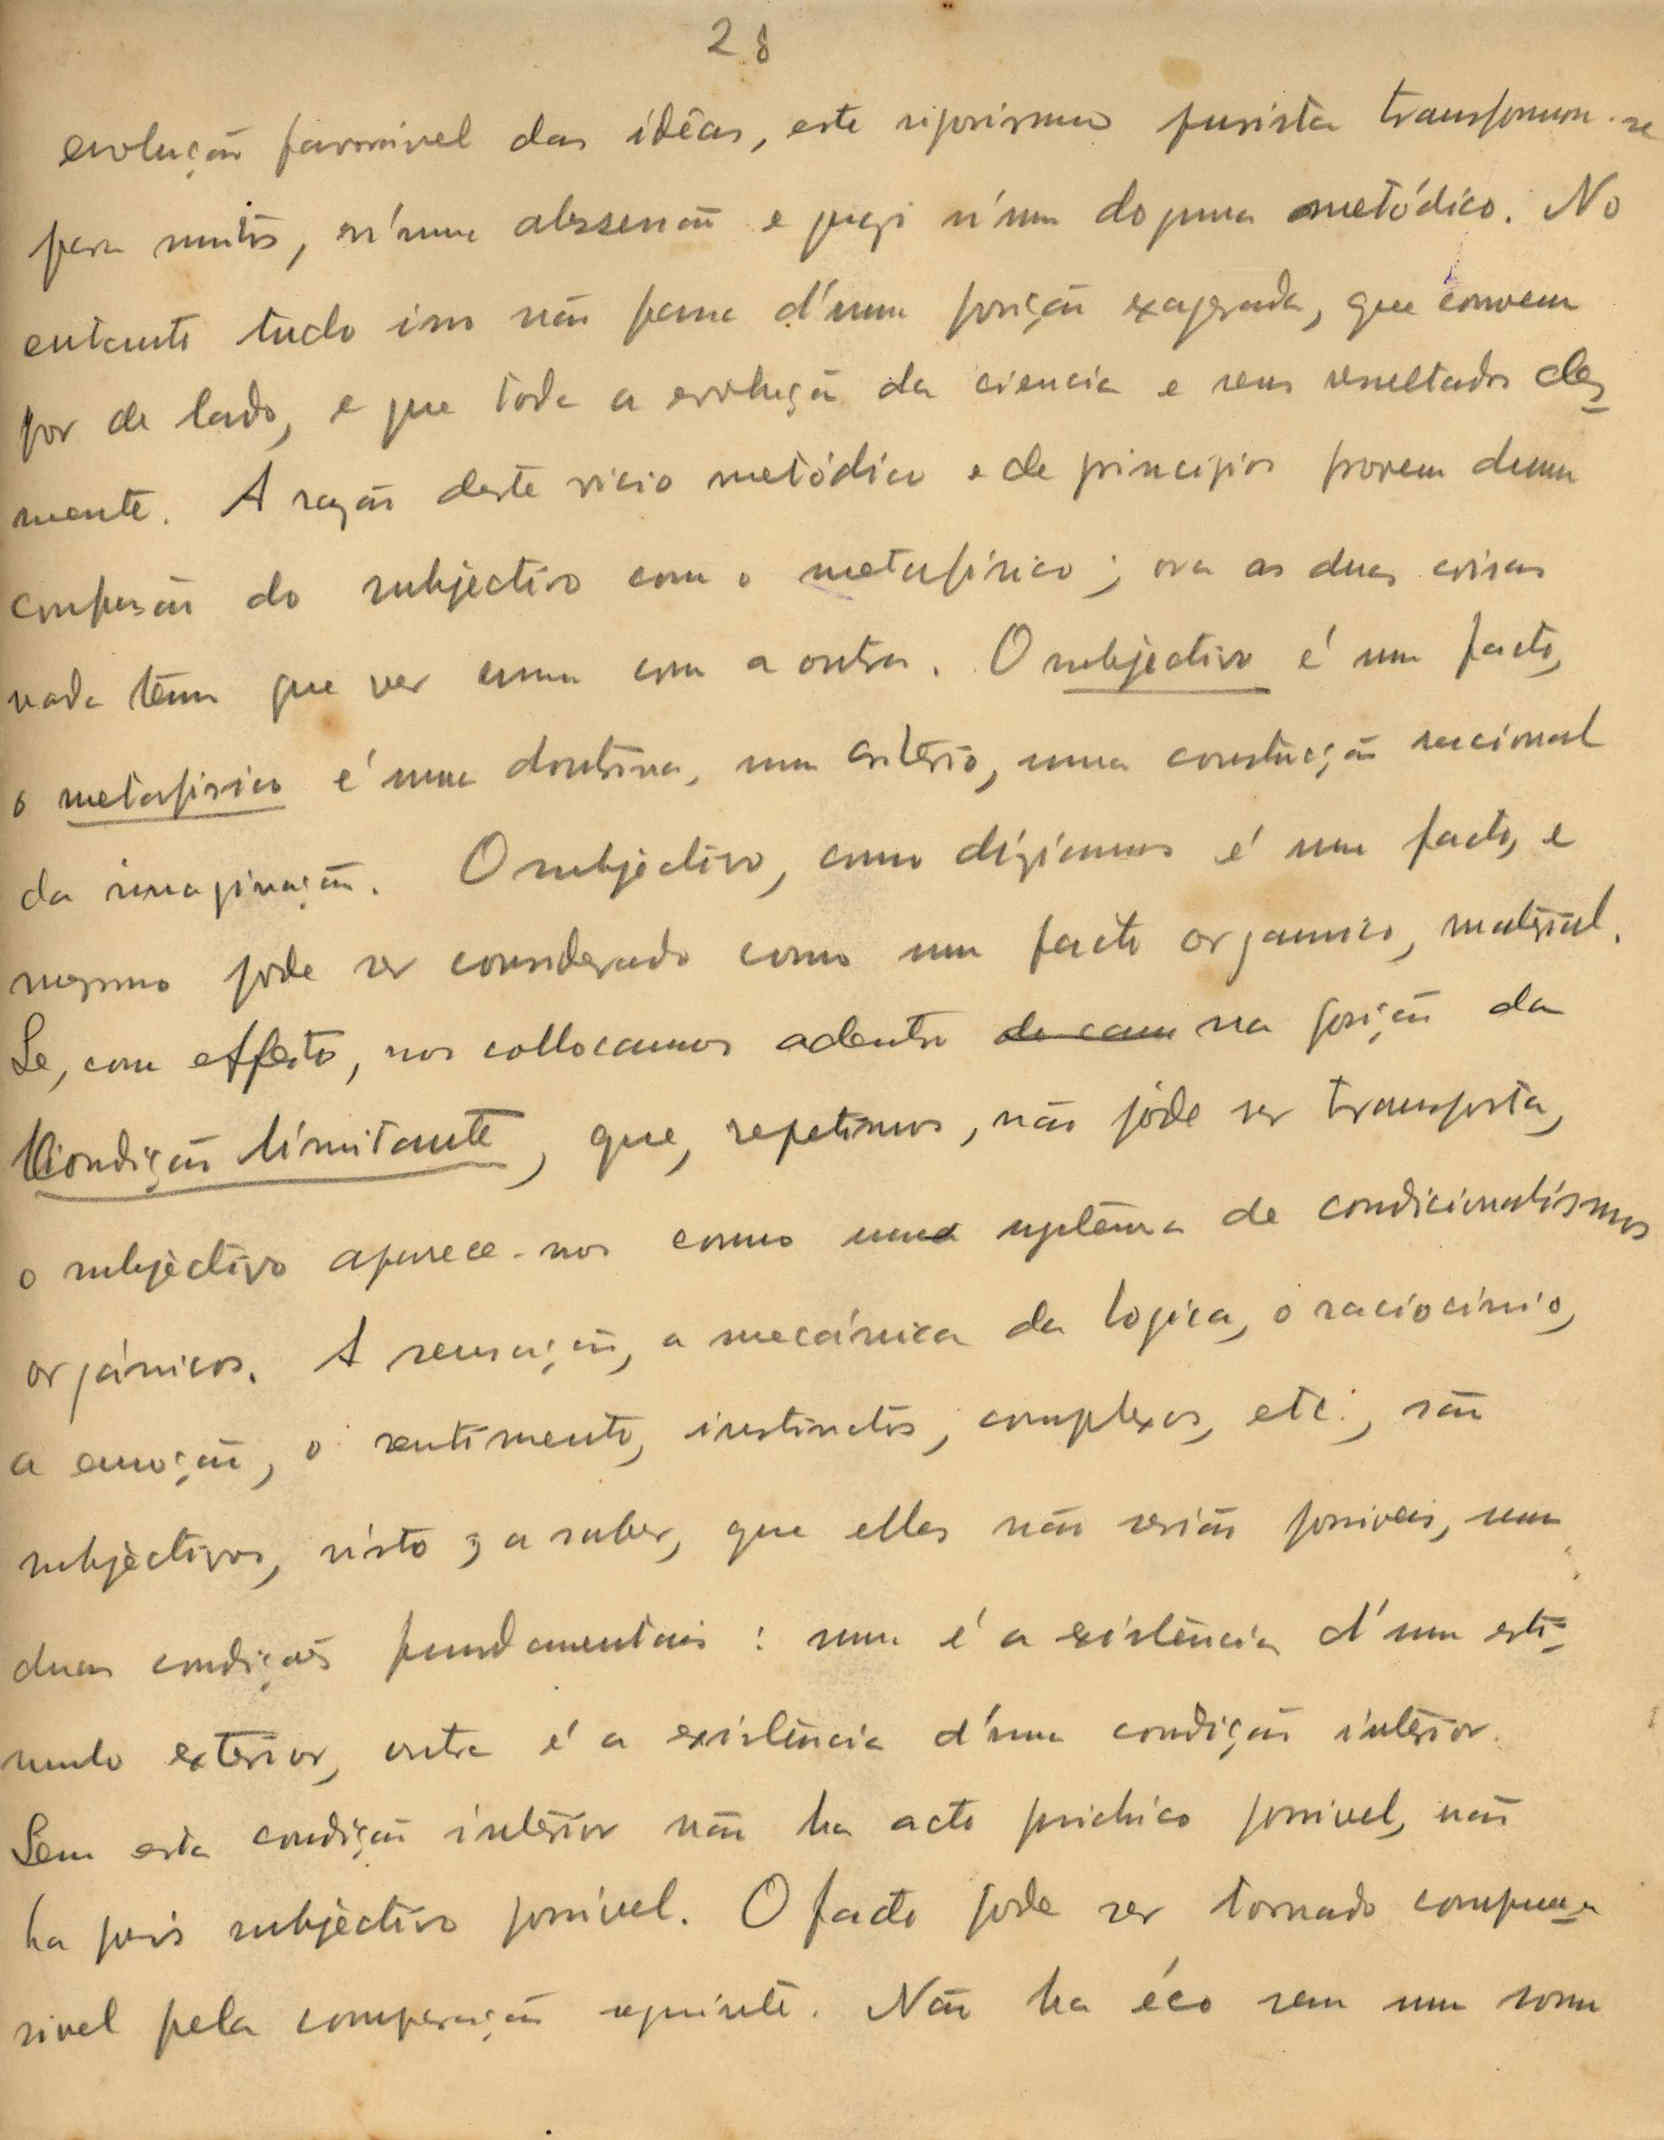 28
evolução favoravel das idêas, este rigorismo purista transformou-se
para muitos, n'uma obssessão e quazi n'um dogma metódico. No
entanto tudo isso não passa d'uma posição exagerada, que convem
por de lado, e que toda a evolução da ciencia e seus resultados des-
mente. A razão deste vicio metódico e de principios provem duma
confusão do subjectivo com o metafisico; ora as duas coisas
nada têm que ver uma com a outra. O subjectivo é um facto,
o metafisico é uma doutrina, um critério, uma construção racional
da imaginação. O subjectivo, como diziamos é um facto, e
mesmo pode ser considerado como um facto organico, material.
Se, com effeito, nos collocamos adentro do cam na posição da
Condição limitante, que, repetimos, não póde ser transposta,
o subjectivo aparece-nos como um systêma de condicionalismos
orgánicos. A sensação, a mecánica da logica, o raciocinio,
a emoção, o sentimento, instinctos, complexos, etc., são
subjectivos, visto z a saber, que elles não serião possiveis, sem
duas condiçoẽs fundamentais: uma é a existência d'um esti-
mulo exterior, outra é a existência d'uma condição intérior.
Sem esta condição intérior não ha acto psichico possivel, não
ha pois subjectivo possivel. O facto pode ser tornado compreen-
sivel pela comparação seguinte. Não ha éco sem um som